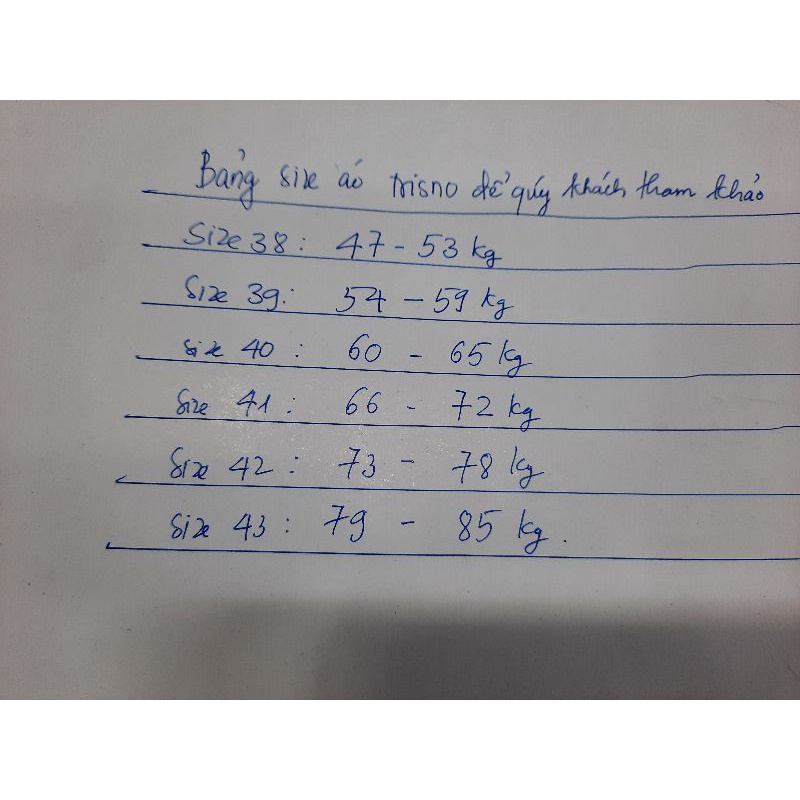 Bảng size áo trisno để quý khách tham khảo
Size 38: 47 - 53 kg
Size 39: 54 - 59 kg
size 40: 60 - 65 kg
Size 41: 66 - 72 kg
Size 42: 73 - 78 kg
size 43: 79 - 85 kg.